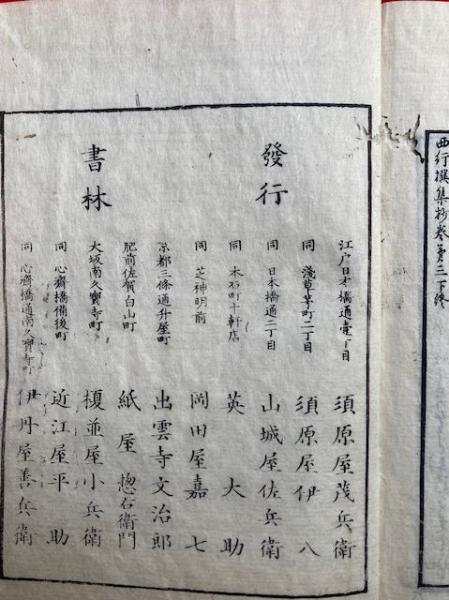 西行撰集抄巻第三下終
發行
書林
江戸日本橋通壹丁目
須原屋茂兵衛
同 淺草茅町二丁目
須原屋伊八
同 日本橋通二丁目
山城屋佐兵衛
同 本石町十軒店
英大助
同 芝神明前
岡田屋嘉七
京都三條通升屋町
出雲寺文治郎
肥前佐賀白山町
紙屋惣右衛門
大坂南久寳寺町
榎並屋小兵衛
同 心齋橋備後町
近江屋平助
同 心齋橋通南久寳寺町
伊丹屋善兵衛